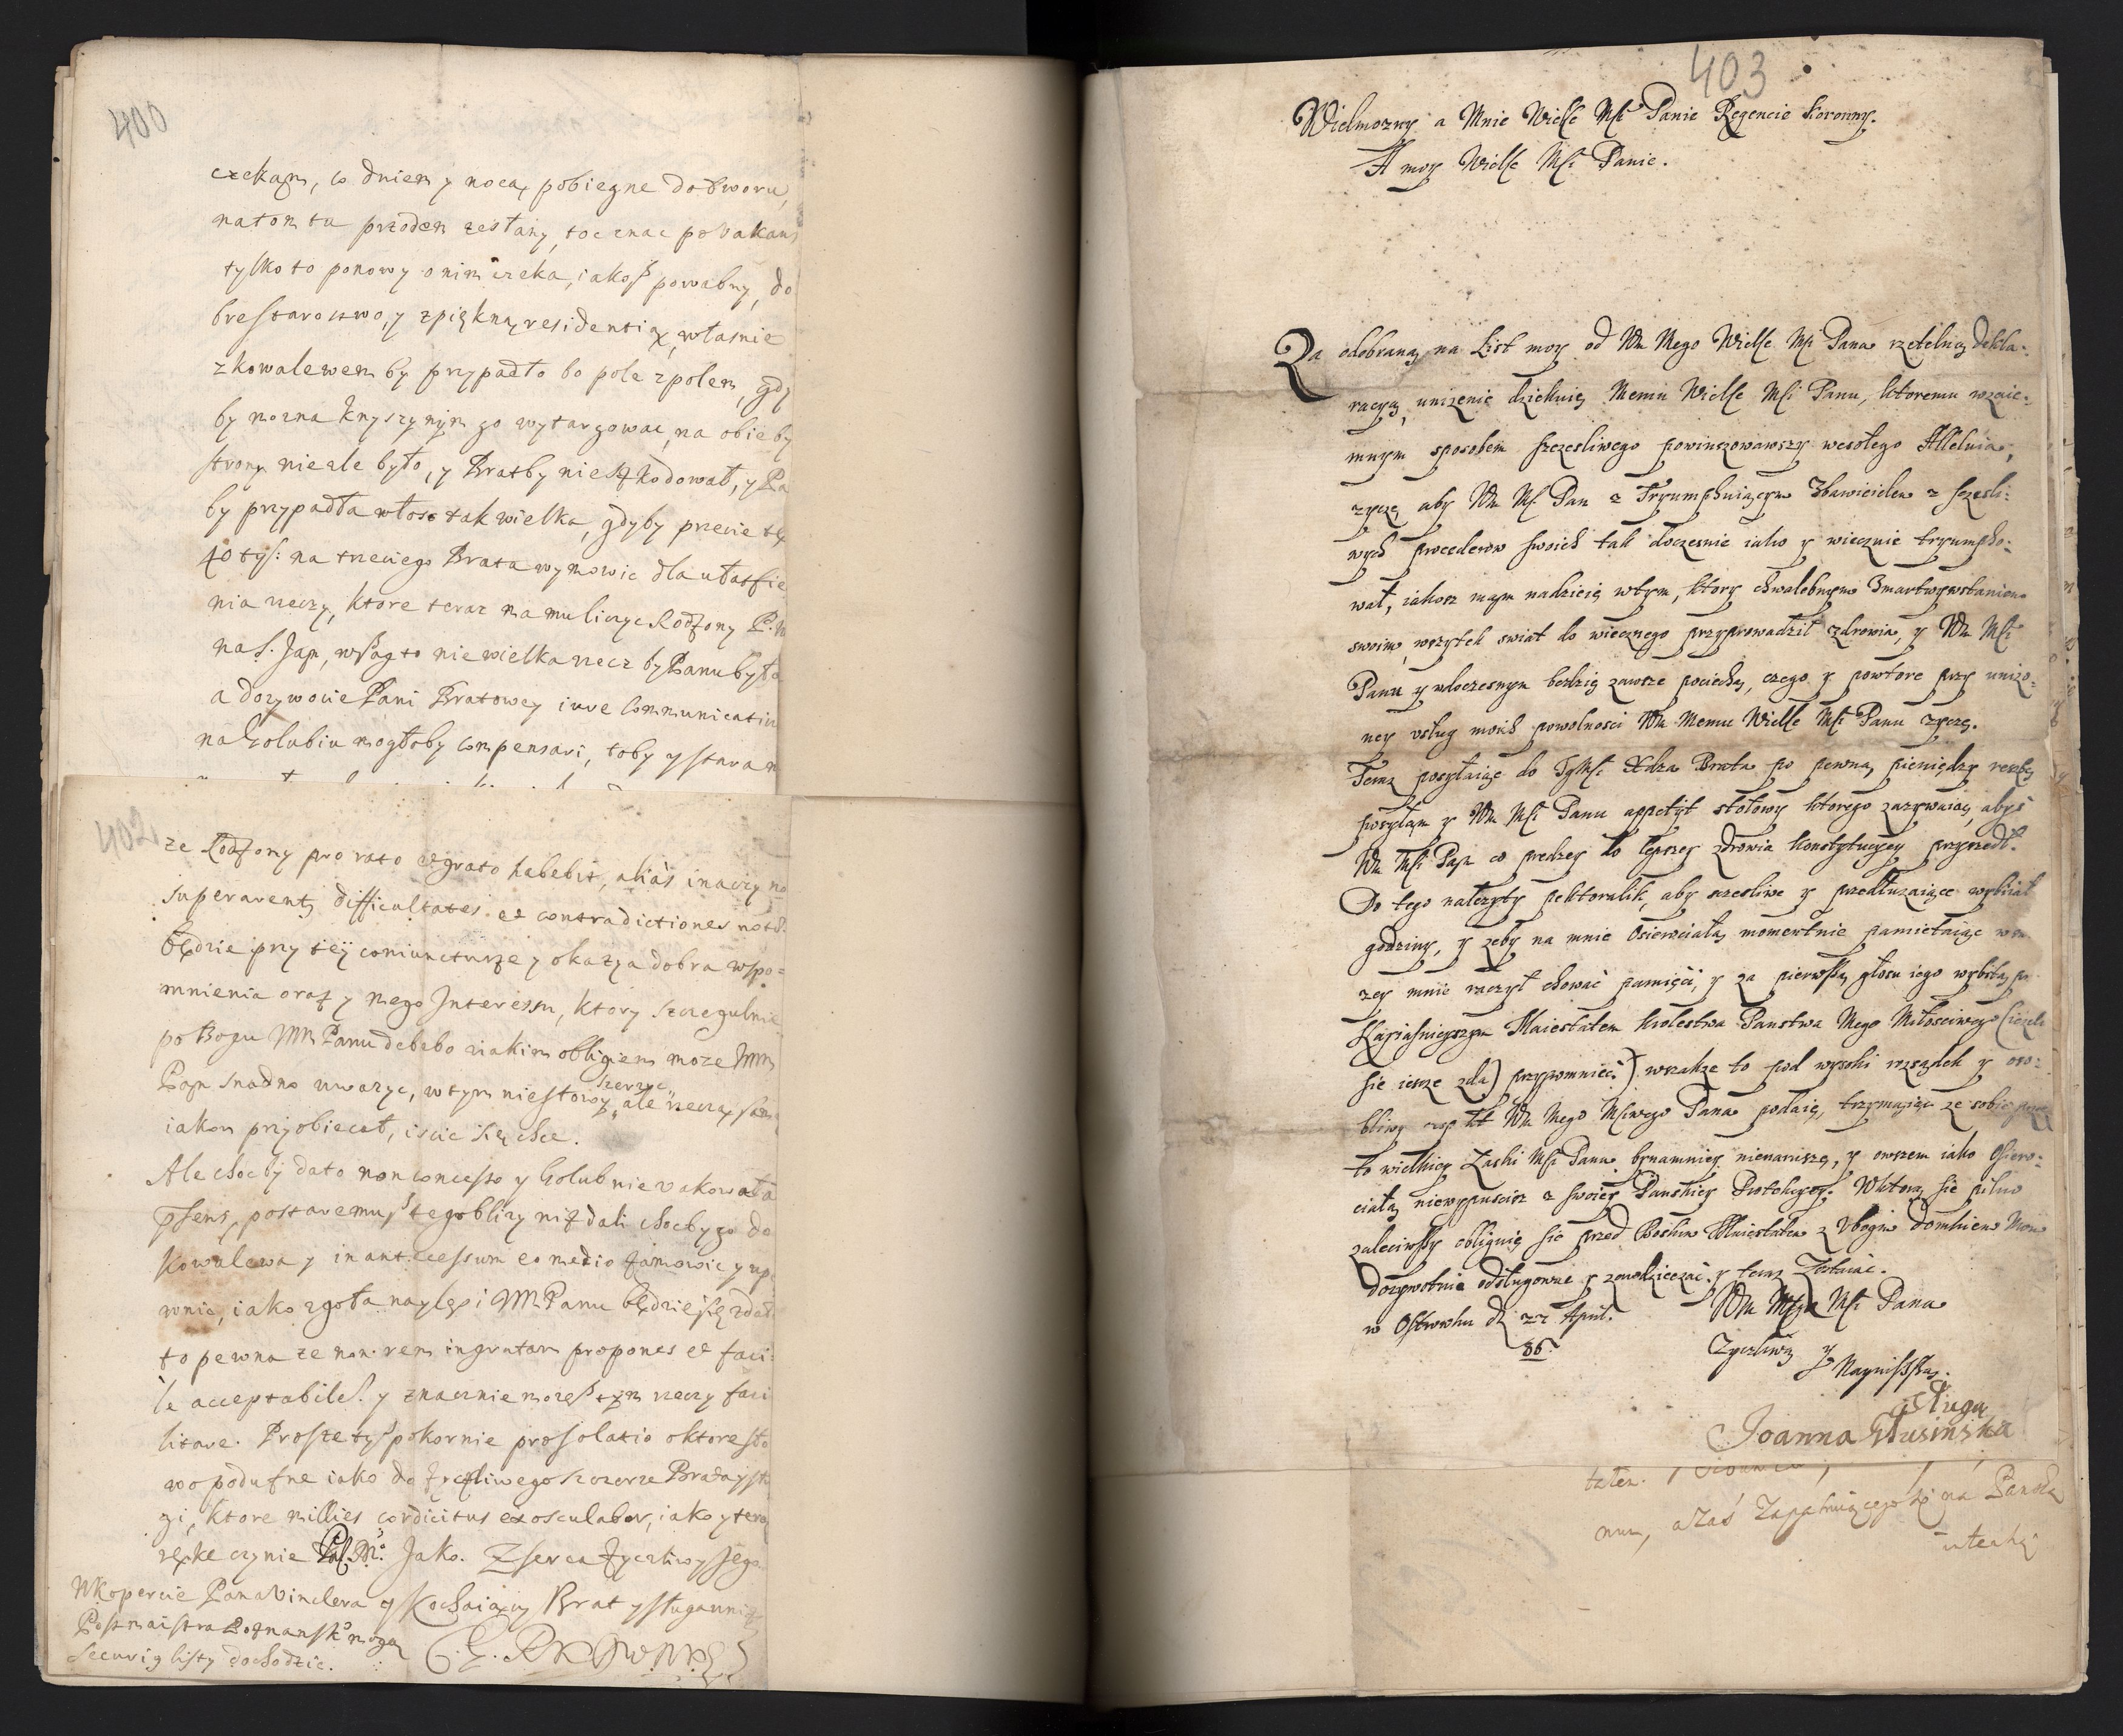 400
czekam, co dniem y nocą pobiegne do dworu,
natom tu przodem zesłany, toc znac po vakans
tylko to ponowy o nim czeka, iakoś powabny, do
bre starostwo, y z piękną residentią, własnie
z kowalewem by przypadło bo pole z polem, gdy
by mozna Knyszynym go wytargowac, na obie by
strony nie zle było, y Brat by nie szkodował, y Pa
by przypadła włosc tak wielka, gdyby precie tę
40 tys: na trzeciego Brata wymowic dla ułatfie
nia rzeczy, ktore teraz ma mu liczyc Rodzony P.
na S. Jan, wszag to nie wielka rzecz by Panu było
a dozywocie Pani Bratowey iure communicatiu
na Golubiu mogłoby compensari, toby y stara
402
ze Rodzony pro rato et grato habebit, alias inaczy
superarent difficultates et contradictiones
będzie przy teÿ coniuncturze y okazya dobra wspo=
mnienia oraz y mego Interessu, ktory szczegulnie
po Bogu WM Panu debebo z iakim obligiem moze WM
Pan snadno uwazyc, w tym nie słowy szerzyc, ale rzeczą samą
iakom przyobiecał, iscic się chce.
Ale choc by dato non concesso y Golub nie vakował
postaremuś tego blizy niz dali choc by go do
Kowalewa y in antecessum eo medio zamowic y up
wnic, iako zgoła naylepi WM Panu będzie się zdał
to pewna ze non rem ingratam propones et faci=
le acceptabile. y znacznie mozesz tym rzeczy faci
litare. Prosze tysz pokornie pro solatio o ktore sło
wo podufne iako do zyczliwego szczerze Brata y słu
gi, ktore millies cordicitus exosculabor, iako y teraz
rękę czynie Jako. Z serca zyczliwy Jego
Kochaiący Brat y sługa uniz
W kopercie Pana Vinclera
Postmaistra Poznansk° mogą
securi g listy dochodzic.
403
Wielmozny a Mnie Wielce Mści Panie Regencie Koronny.
A moy Wielce Mści Panie.
Za odebraną na List moy od Wm Mego Wielce Mści Pana rzetelną dekla=
racyą, unizenie dziekuię Memu Wielce Mści Panu, ktoremu wzaie=
mnym sposobem szczesliwego powinszowawszy wesołego Alleluia,
zyczę aby Wm Mści Pan z Tryumphuiącym Zbawicielem z szczesli=
wych procederow swoich tak doczesnie iako y wiecznie tryumpho=
wał, iakosz mam nadzieię w tym, ktory chwalebnym Zmartwywstaniem
swoim, wszytek swiat do wiecznego przyprowadził zdrowia, y Wm Mści
Panu y w doczesnym bedzie zawsze pociechą, czego y powtore przy unizo=
ney usług moich powolnosci Wm Memu Wielce Mści Panu zyczę.
Teraz posyłaiąc do JgMści Xdza Brata po pewną pieniędzy resztę
posyłam y Wm Mści Panu appetyt stołowy ktorego zazywaiąc, abyś
Wm Mści Pan co predzey do lepszey zdrowia konstytucyey przyszedł.
Do tego nalezyty pektoralik, aby szczesliwe y przedłuzaiące wybiiał
godziny, y zeby na mnie Osierociałą momentnie pamietaiąc
zey mnie raczył chować pamięci, y za pierwszą głosu iego wybitą
Nayiasnieyszym Maiestatem Krolestwa Panstwa Mego Miłosciwego (iezeli
sie iesze zda) przypomnieć) wszakze to pod wysoki rozsądek y oso=
bliwy Wm Mego Mściwego Pana podaię, trzymaiąc ze sobie przez
to wielkiey Łaski Mści Pana bynamniey nienaruszę, y owszem iako Osiero=
ciałą niewypuscisz z swoiey Panskiey Protekcyey. W ktorą sie pilno
zaleciwszy obliguię sie przed Boskim Maiestatem z Ubogim domkiem Moim
dozywotnie odsługowac y zawdzieczać. y teraz Zostaiąc.
Wm Mści Pana
w Ostrowku d 22 April.
86.
Zyczliwą y
Naynisszą
sługą
Joanna Husinska
mu, a zaś Zapatruiącego się na Panską